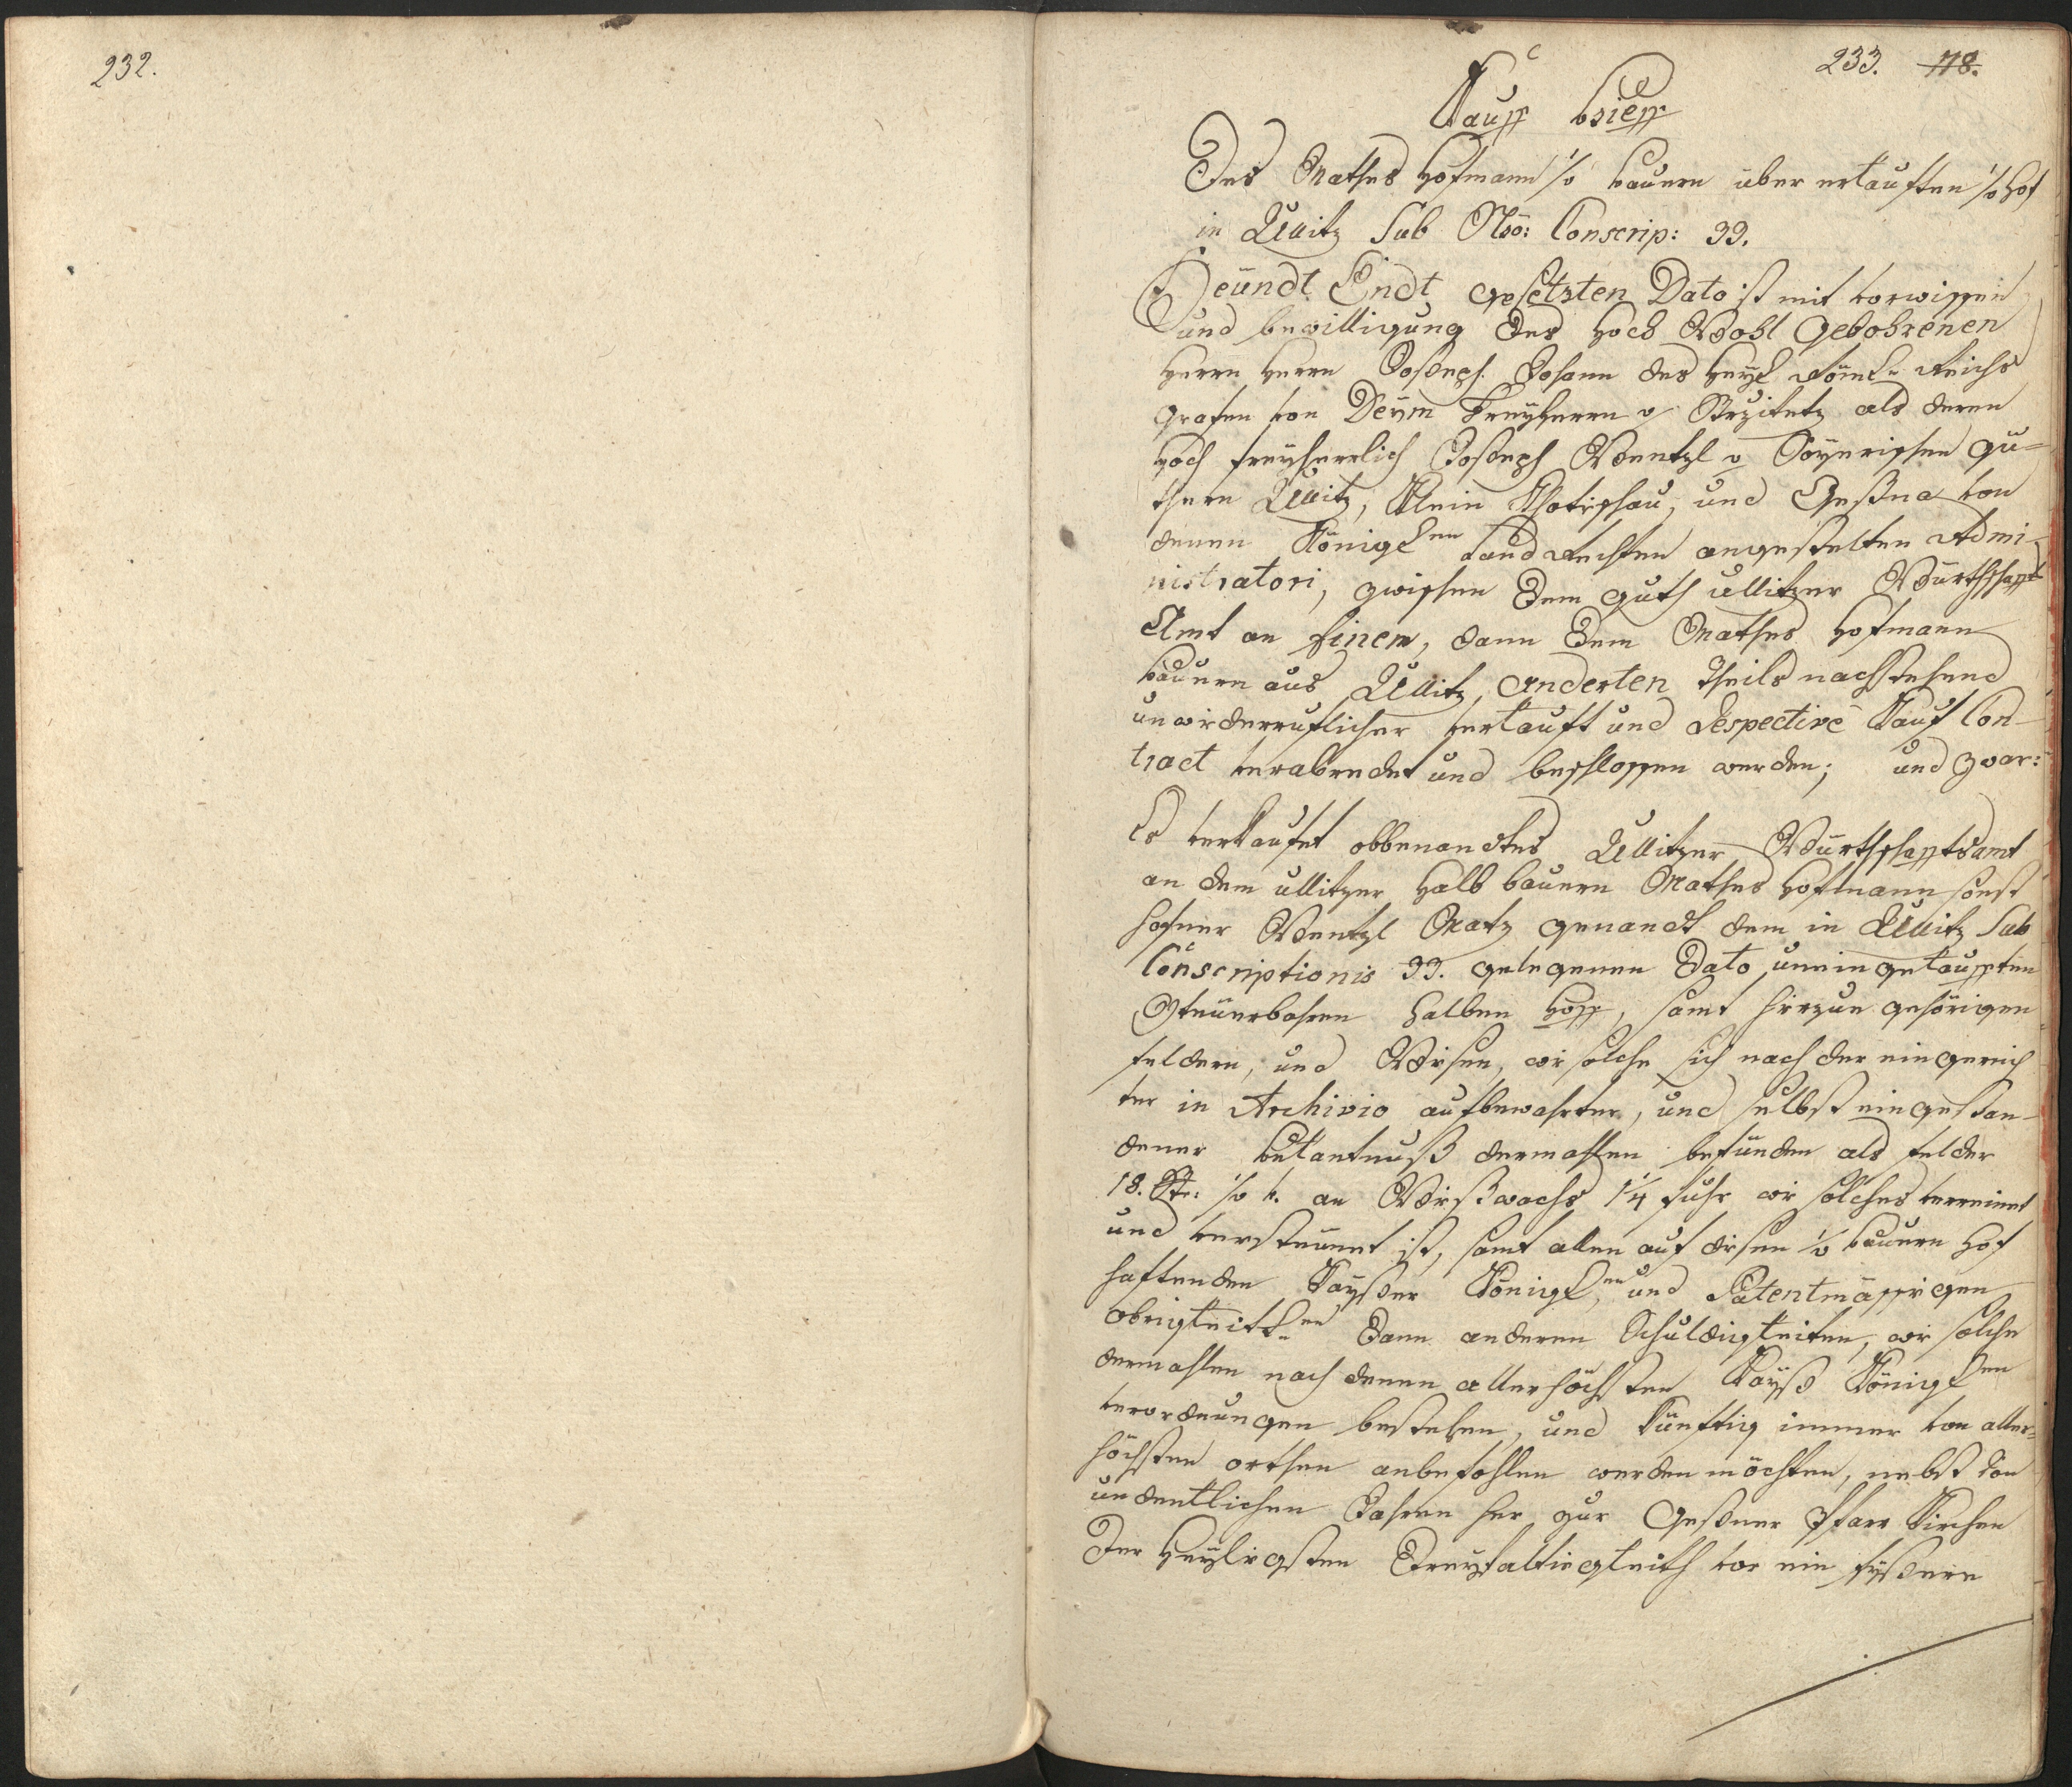 232.
233. 118.
Kauff brieff
Des Mathes Hofmann 1/2 bauern über erkauften 1/2 Hof
in Ullitz Sub Nro: Conscrip: 33.
Heündt Endt gesetzten Dato ist mit vorwissen
und bewilligung des Hoch Wohl Gebohrenen
Herrn Herrn Joseph Johann des Heyl. Röm. Reichs
Grafen von Deÿm Freyherrn v Strzitetz als deren
Hoch freyherrlich Joseph Wentzl v gü-
thern Ullitz, Klein Chotischau, und Geßna von
denen Königl.en Landrechten angestelten Admi-
nistratori, zwischen dem guth ullitzer Würthschaffts
Amt an Einem, dann dem Mathes Hofmann
bauern aus Ullitz anderten Theils nachstehend
unwiderruflicher verkauft und Respective Kauf Con-
tract verabredet und beschlossen worden; und zwar:
Es verkaufet obbenandtes Ullitzer Würthschafftsamt
an dem ullitzer Halb bauern Mathes Hofmann sonst
Wentzl Matz genandt dem in Ullitz Sub
Conscriptionis 33. gelegenen Dato uneingekaufften
Steüerbahren halben Hoff, samt hirzue gehörigen
feldern, und Wisen, wie solche sich nach der eingereich
ter in Archivio aufbewahrter, und selbst eingestan-
dener bekantnuß dermahlen befünden als felder
18. Str: 1/2 v. an Wißwachs 1 1/4 fuhr wie solches verreinet
und versteünet ist, samt allen auf disen 1/2 bauern Hof
haftenden Kayßer Königl.en und Patentmässigen
obrigkeitl.en Dann anderen Schuldigkeiten, wie solche
dermahlen nach denen allerhöchsten Kayß Königl.en
verordnungen bestehen, und künftig immer von aller-
höchsten orthen anbefohlen werden möchten, nebst von
undentlichen Jahren her zur Geßner Pfarr Kirchen
Der Heyligsten Dreyfaltigkeith vor ein